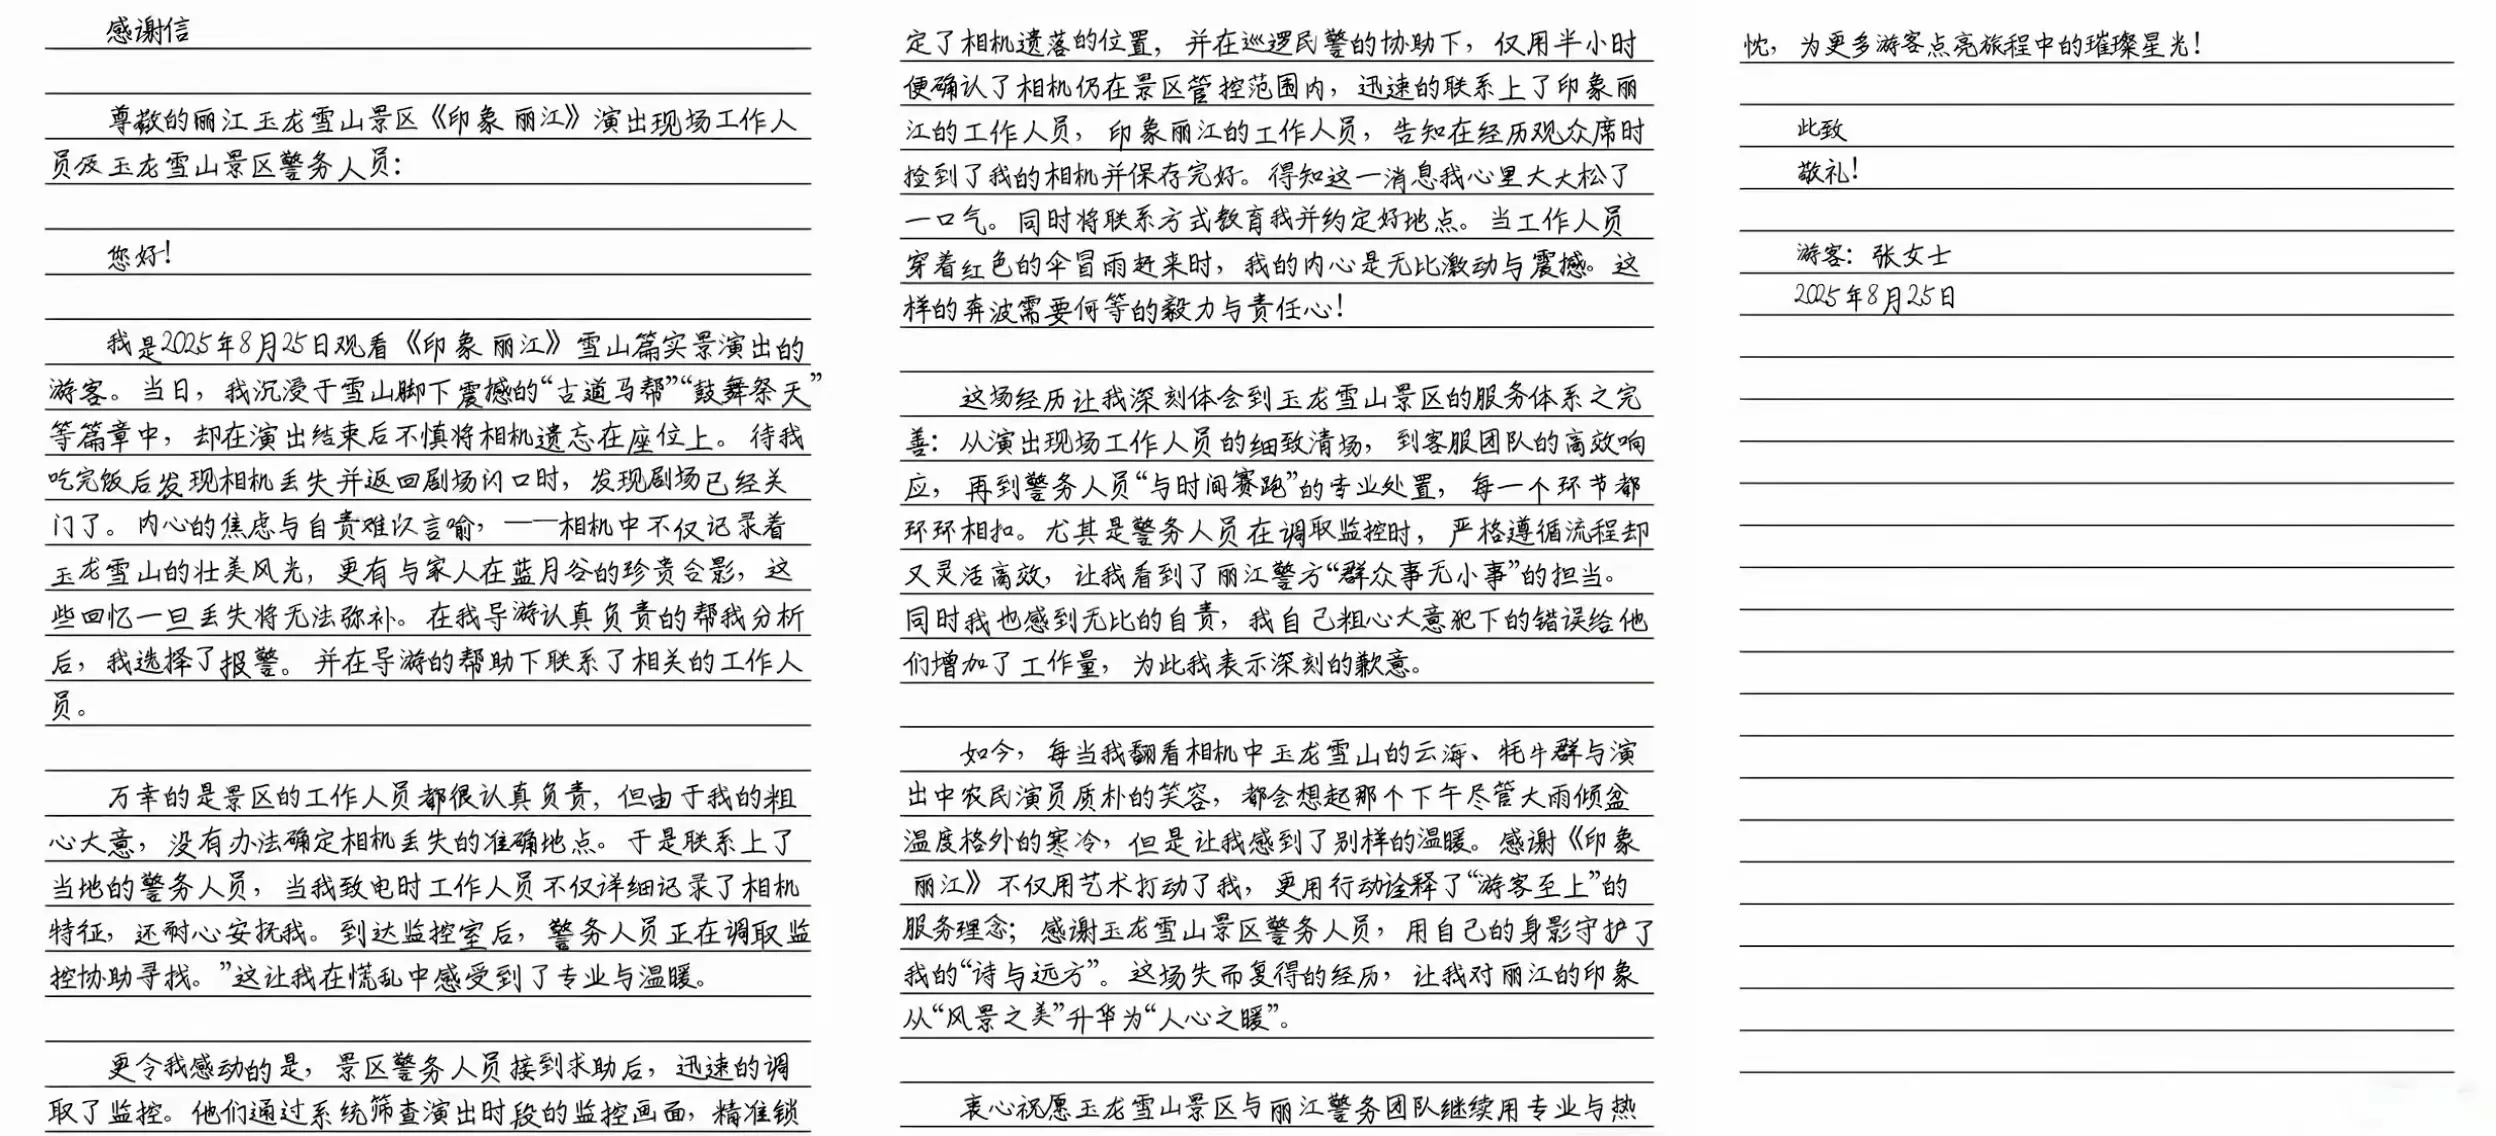 感谢信
尊敬的丽江玉龙雪山景区《印象 丽江》演出现场工作人
员及玉龙雪山景区警务人员：
您好！
我是2025年8月25日观看《印象 丽江》雪山篇实景演出的
游客。当日，我沉浸于雪山脚下震撼的“古道马帮”“鼓舞祭天”
等篇章中，却在演出结束后不慎将相机遗忘在座位上。待我
吃完饭后发现相机丢失并返回剧场闪口时，发现剧场已经关
门了。内心的焦虑与自责难以言喻，——相机中不仅记录着
玉龙雪山的壮美风光，更有与家人在蓝月谷的珍贵合影，这
些回忆一旦丢失将无法弥补。在我导游认真负责的帮我分析
后，我选择了报警。并在导游的帮助下联系了相关的工作人
员。
万幸的是景区的工作人员都很认真负责，但由于我的粗
心大意，没有办法确定相机丢失的准确地点。于是联系上了
当地的警务人员，当我致电时工作人员不仅详细记录了相机
特征，还耐心安抚我。到达监控室后，警务人员正在调取监
控协助寻找。”这让我在慌乱中感受到了专业与温暖。
更令我感动的是，景区警务人员接到求助后，迅速的调
取了监控。他们通过系统筛查演出时段的监控画面，精准锁
定了相机遗落的位置，并在巡逻民警的协助下，仅用半小时
便确认了相机仍在景区管控范围内，迅速的联系上了印象丽
江的工作人员，印象丽江的工作人员，告知在经历观众席时
捡到了我的相机并保存完好。得知这一消息我心里大大松了
一口气。同时将联系方式教育我并约定好地点。当工作人员
穿着红色的伞冒雨赶来时，我的内心是无比激动与震撼。这
样的奔波需要何等的毅力与责任心！
这场经历让我深刻体会到玉龙雪山景区的服务体系之完
善：从演出现场工作人员的细致清场，到客服团队的高效响
应，再到警务人员“与时间赛跑”的专业处置，每一个环节都
环环相扣。尤其是警务人员在调取监控时，严格遵循流程却
又灵活高效，让我看到了丽江警方“群众事无小事”的担当。
同时我也感到无比的自责，我自己粗心大意犯下的错误给他
们增加了工作量，为此我表示深刻的歉意。
如今，每当我翻看相机中玉龙雪山的云海、牦牛群与演
出中农民演员质朴的笑容，都会想起那个下午尽管大雨倾盆
温度格外的寒冷，但是让我感到了别样的温暖。感谢《印象
丽江》不仅用艺术打动了我，更用行动诠释了“游客至上”的
服务理念；感谢玉龙雪山景区警务人员，用自己的身影守护了
我的“诗与远方”。这场失而复得的经历，让我对丽江的印象
从“风景之美”升华为“人心之暖”。
衷心祝愿玉龙雪山景区与丽江警务团队继续用专业与热
忱，为更多游客点亮旅程中的璀璨星光！
此致
敬礼！
游客：张女士
2025年8月25日